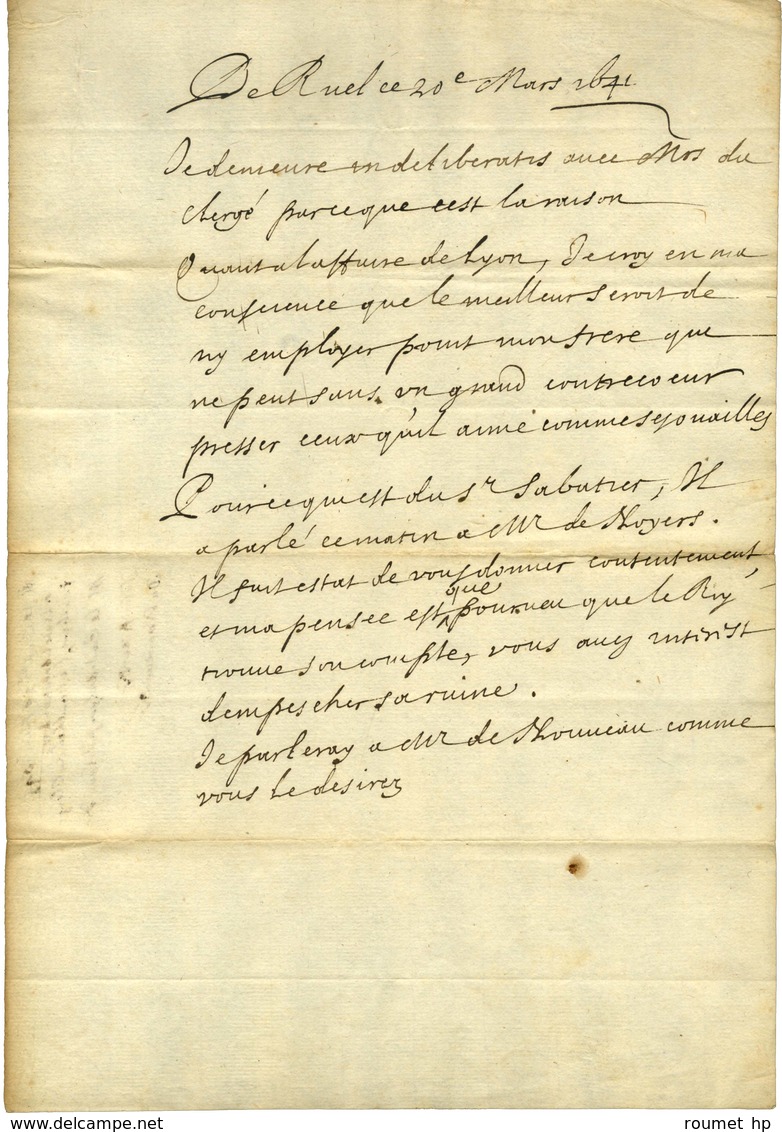 De Ruel ce 20e Mars 1641
Je demeure in deliberatis avec Mrs du
Clergé parce que cest la raison
Quant a laffaire de Lyon, Je croy en ma
conscience que le meilleur seroit de
ny employer point mon frere que
ne peut sans un grand contrecoeur
presser ceux quil aime comme ses ouailles
Pour ce qui est du Sr Sabatier, Il
a parlé ce matin a Mr de Noyers.
Il fait estat de vous donner contentement,
et ma pensee est que pourveu que le Roy
trouve son compte, vous avez interest
dempescher sa ruine.
Je parleray a Mr de Nouveau comme
vous le desirez
roumet hp